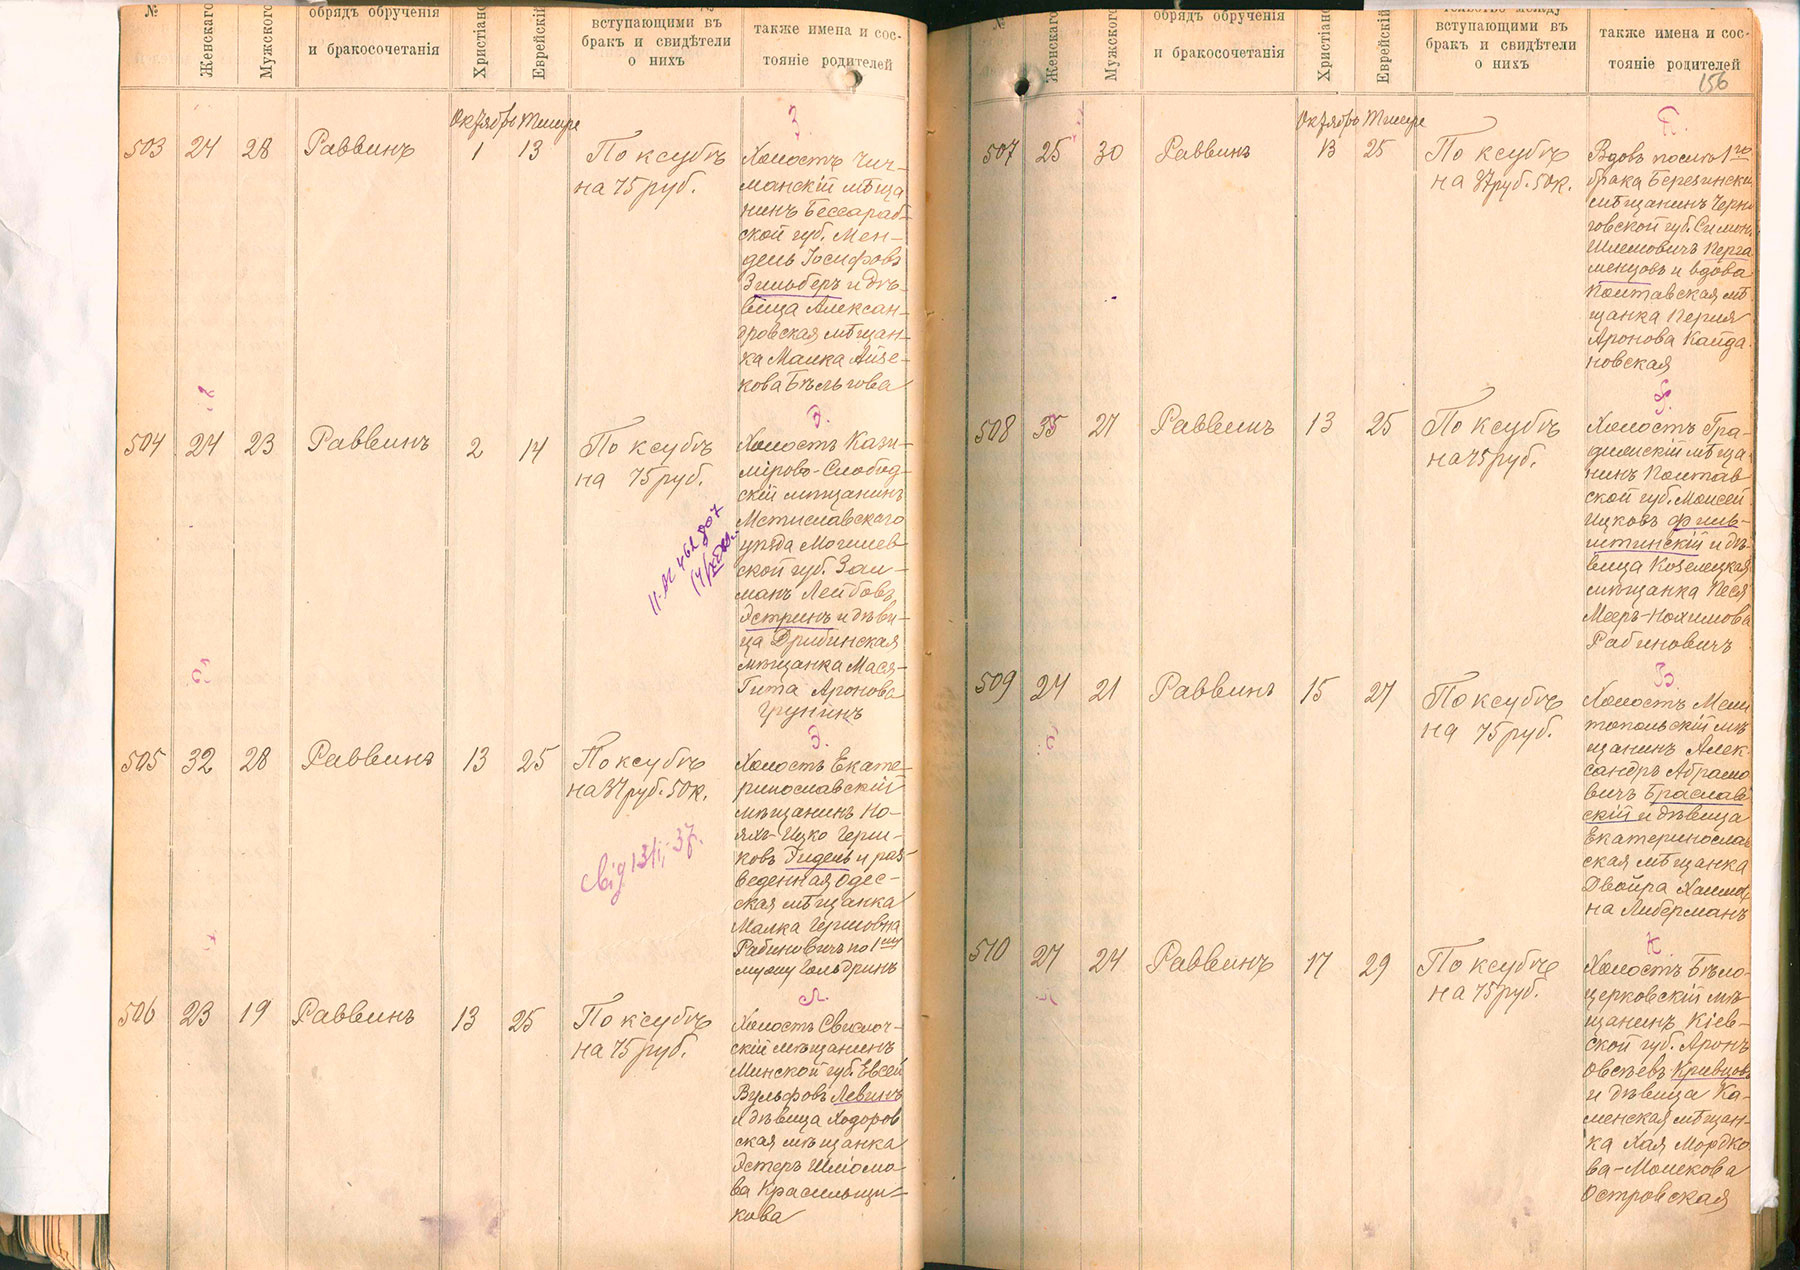 №
Женскаго
Мужского
обрядъ обрученія
и бракосочетанія
Христіанс
Еврейскій
вступающими въ
бракъ и свидѣтели
о нихъ
также имена и сос-
тояніе родителей
Октябрь Тишре
З.
503 24 28 Раввинъ 1 13 По ксубѣ
на 75 руб.
Холостъ Чич-
манскій мѣща
нинъ Бессараб-
ской губ. Мен-
дель Іосифовъ
Зильберъ и дѣ-
вица Алексан-
дровская мѣщан-
ка Малка Айзе-
кова Бѣльгова
Э.
504 24 23 Раввинъ 2 14 По ксубѣ
на 75 руб.
Холостъ Кази-
мірово-Слобод-
скій мѣщанинъ
Мстиславскаго
уѣзда Могилев
ской губ. Зал-
манъ Лейбовъ
Эстринъ и дѣви-
ца Дрибинская
мѣщанка Мася-
Гита Аронова
Грунинъ
Э.
505 32 28 Раввинъ 13 25 По ксубѣ
на 37 руб. 50 к.
Від 13/II-37.
Холостъ Екате-
ринославскій
мѣщанинъ Но-
яхъ-Ицко Герш-
ковъ Эйдель и раз-
веденная Одес-
ская мѣщанка
Малка Гершовна
Рабиновичъ по 1му
мужу Гольдринъ
Л.
506 23 19 Раввинъ 13 25 По ксубѣ
на 75 руб.
Холостъ Свислоч-
скій мѣщанинъ
Минской губ. Евсей
Вульфовъ Левинъ
и дѣвица Ходоров
ская мѣщанка
Эстеръ Шліомо-
ва Красильщи-
кова
№
Женскаго
Мужского
обрядъ обрученія
и бракосочетанія
Христіанс
Еврейскій
вступающими въ
бракъ и свидѣтели
о нихъ
также имена и сос-
тояніе родителей
156
Октябрь Тишре
П.
507 25 30 Раввинъ 13 25 По ксубѣ
на 37 руб. 50 к.
Вдовъ послѣ 1го
брака Березинскій
мѣщанинъ Черни
говской губ. Симонъ
Шлемовичъ Перга
менцовъ и вдова
Полтавская мѣ
щанка Перля
Аронова Кайда
новская
Ф.
508 35 27 Раввинъ 13 25 По ксубѣ
на 75 руб.
Холостъ Гра-
дижскій мѣща
нинъ Полтав
ской губ. Моисей
Ицковъ Филь-
штинскій и дѣ-
вица Козелецкая
мѣщанка Песя
Мееръ-Нохимова
Рабиновичъ
Б.
509 24 21 Раввинъ 15 27 По ксубѣ
на 75 руб.
Холостъ Мели
топольскій мѣ
щанинъ Алек-
сандръ Абрамо
вичъ Браславъ
скій и дѣвица
Екатеринослав
ская мѣщанка
Двойра Хаимов
на Либерманъ
К.
510 27 24 Раввинъ 17 29 По ксубѣ
на 75 руб.
Холостъ Бѣло-
церковскій мѣ-
щанинъ Кіев-
ской губ. Аронъ
Овсѣевъ Кривцовъ
и дѣвица Ка-
менская мѣщан-
ка Хая Мордко
ва-Мошкова
Островская